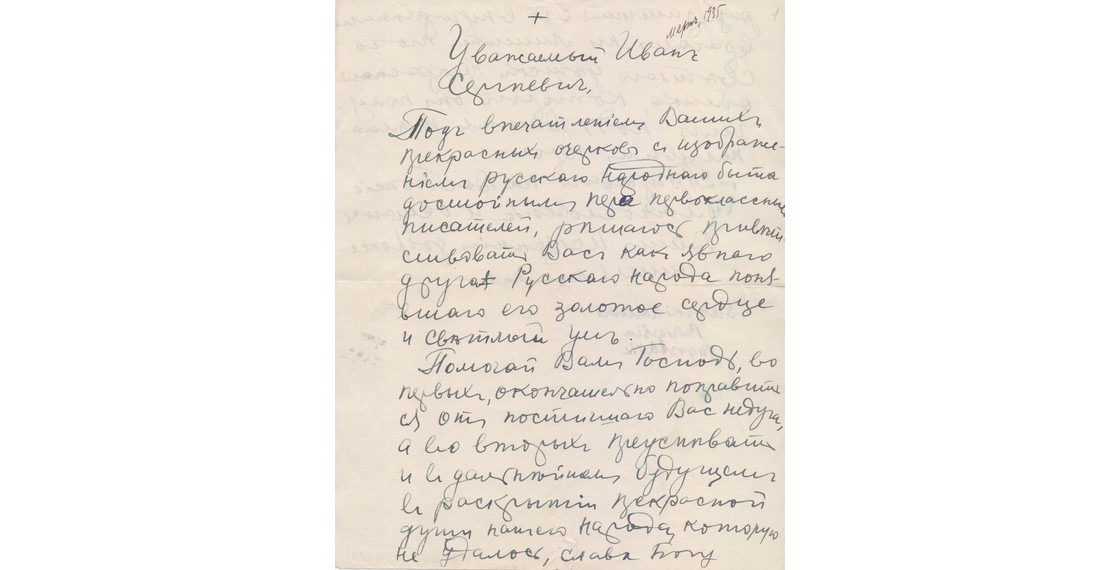 +
мартъ, 1935
1
Уважаемый Иванъ
Сергѣевичъ,
Подъ впечатлѣніемъ Вашихъ
прекрасныхъ очерковъ съ изображе-
ніемъ русскаго народнаго быта
достойныхъ пера первоклассныхъ
писателей, рѣшаюсь привѣт-
ствовать Васъ какъ явнаго
друга Русскаго народа поня-
вшаго его золотое сердце
и свѣтлый умъ.
Помогай Вамъ Господь, во
первыхъ, окончательно поправить
ся отъ постигшаго Васъ недуга,
а во вторыхъ преуспѣвать
и въ дальнѣйшемъ будущемъ
въ раскрытіи прекрасной
души нашего народа, которую
не удалось, слава Богу